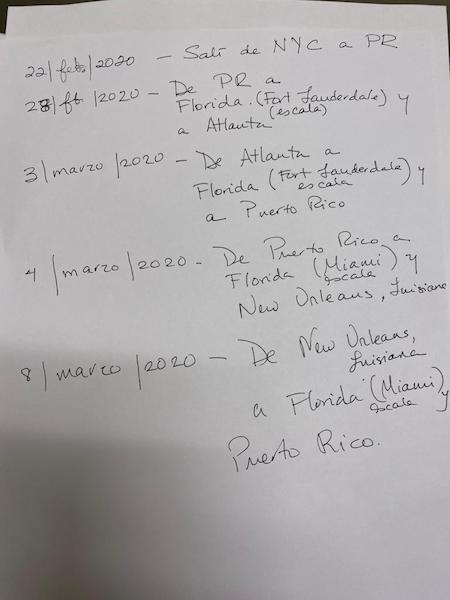 22/feb/2020 - Salí de NYC a PR
28/fb/2020 - De PR a
Florida. (Fort Lauderdale) y
(escala)
a Atlanta
3/marzo/2020 - De Atlanta a
Florida (Fort Lauderdale) y
escala
a Puerto Rico
4/marzo/2020 - De Puerto Rico a
Florida (Miami) y
escala
New Orleans, Luisiana
8/marzo/2020 - De New Orleans,
Luisiana
a Florida (Miami) y
escala
Puerto Rico.